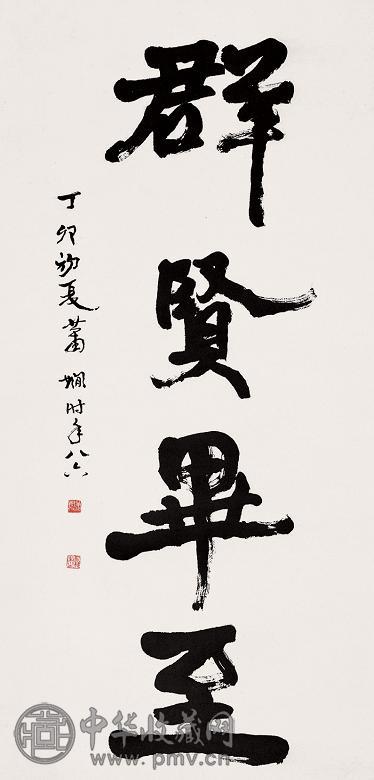 群賢畢至
丁卯初夏蕭嫻时年八六
中华收藏网
www.pmv.cn